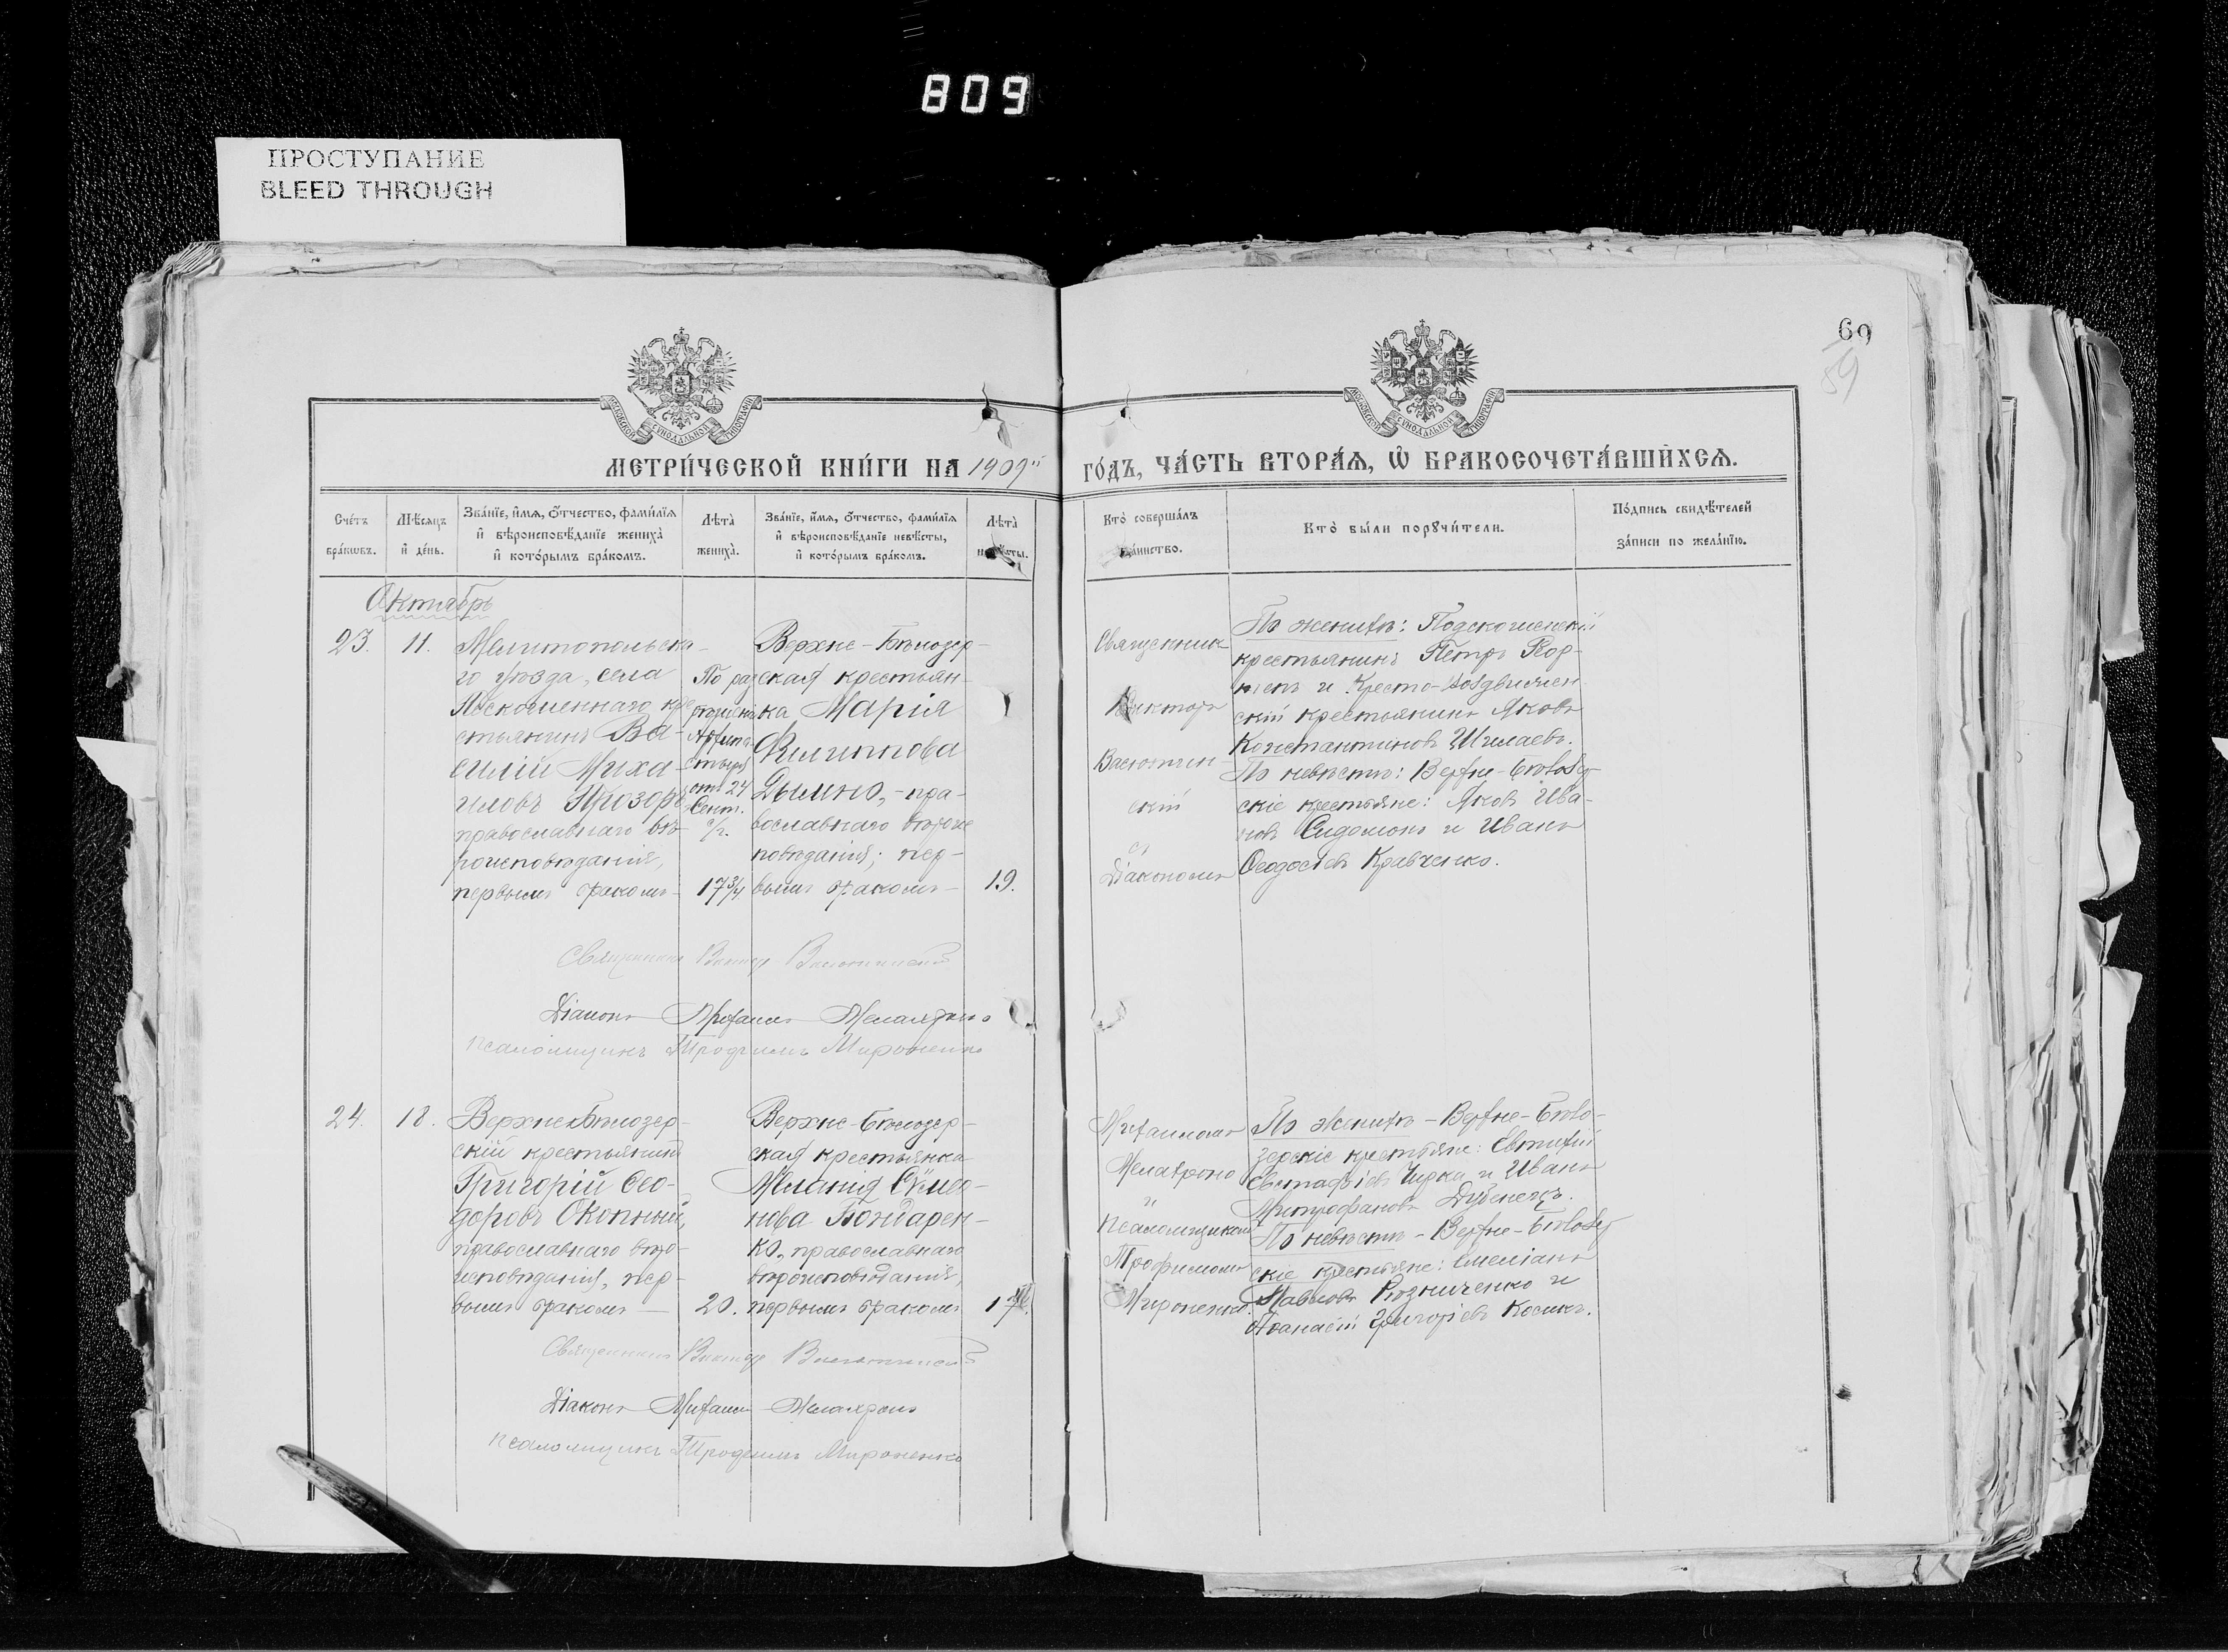 809
ПРОСТУПАНИЕ
BLEED THROUGH
69
59
МОСКОВСКОЙ СѴНОДАЛЬНОЙ ТИПОГРАФІИ
МОСКОВСКОЙ СѴНОДАЛЬНОЙ ТИПОГРАФІИ
МЕТРИ́ЧЕСКОЙ КНИ́ГИ НА 1909й ГО́ДЪ, ЧА́СТЬ ВТОРА́Ѧ, Ѡ҆ БРАКОСОЧЕТА́ВШИХСѦ.
Сче́тъ бра́кѡвъ.
Мѣ́сѧцъ и҆ де́нь.
Зва́нїе, и҆́мѧ, ѻ҆́тчество, фами́лїѧ
и҆ вѣроисповѣ́данїе жениха̀
и҆ кото́рымъ бра́комъ.
Лѣта̀ жениха̀.
Зва́нїе, и҆́мѧ, ѻ҆́тчество, фами́лїѧ
и҆ вѣроисповѣ́данїе невѣ́сты,
и҆ кото́рымъ бра́комъ.
Лѣта̀ невѣ́сты.
Кто̀ соверша́лъ
та́инство.
Кто̀ бы́ли порꙋчи́тели.
По́дпись свидѣ́телей
за́писи по жела́нїю.
Октябрь
23.
11.
Мелитопольска-
го уѣзда, села
кре-
стьянинъ Ва-
силій Миха-
иловъ Прозоръ
православнаго вѣ-
роисповѣданія,
первымъ бракомъ-
По раз
рѣшенію
от 24
Сент.
с/г.
17 3/4.
Верхне-Бѣлозер-
ская крестьян-
ка Марія
Филиппова
Дымно, -пра-
вославнаго вѣроис
повѣданія; пер-
вымъ бракомъ-
19.
Священникъ
Викторъ
скій
съ
Діакономъ
По женихѣ:
крестьянинъ Петръ
и Кресто-Воздвижен
скій крестьянинъ Яковъ
Константиновъ
По невѣстѣ: Верхне-Бѣлозер
скіе крестьяне: Яковъ Ива-
новъ и Иванъ
Феодосіевъ Кравченко.
Священникъ Викторъ
Діаконъ Михаилъ
Псаломщикъ Трофимъ Мироненко
24.
18.
Верхне-Бѣлозер-
скій крестьянинъ
Григорій Фео-
доровъ Окопный,
православнаго вѣро-
исповѣданія, пер-
вымъ бракомъ —
20.
Верхне-Бѣлозер-
ская крестьянка
Меланія Симео-
нова Бондарен-
ко, православнаго
вѣроисповѣданія,
первымъ бракомъ
Михаиломъ
и
Псаломщикомъ
Трофимомъ
Мироненко.
По женихѣ - Верхне-Бѣло-
зерскіе крестьяне: Евтихій
Евстафіевъ Чирка и Иванъ
Митрофановъ Дубенецъ.
По невѣстѣ - Верхне-Бѣлозер
скіе крестьяне: Емеліанъ
Павловъ Рѣзниченко и
Аѳанасій Григоріевъ Косикъ.
Священникъ Викторъ
Діаконъ Михаилъ
Псаломщикъ Трофимъ Мироненко